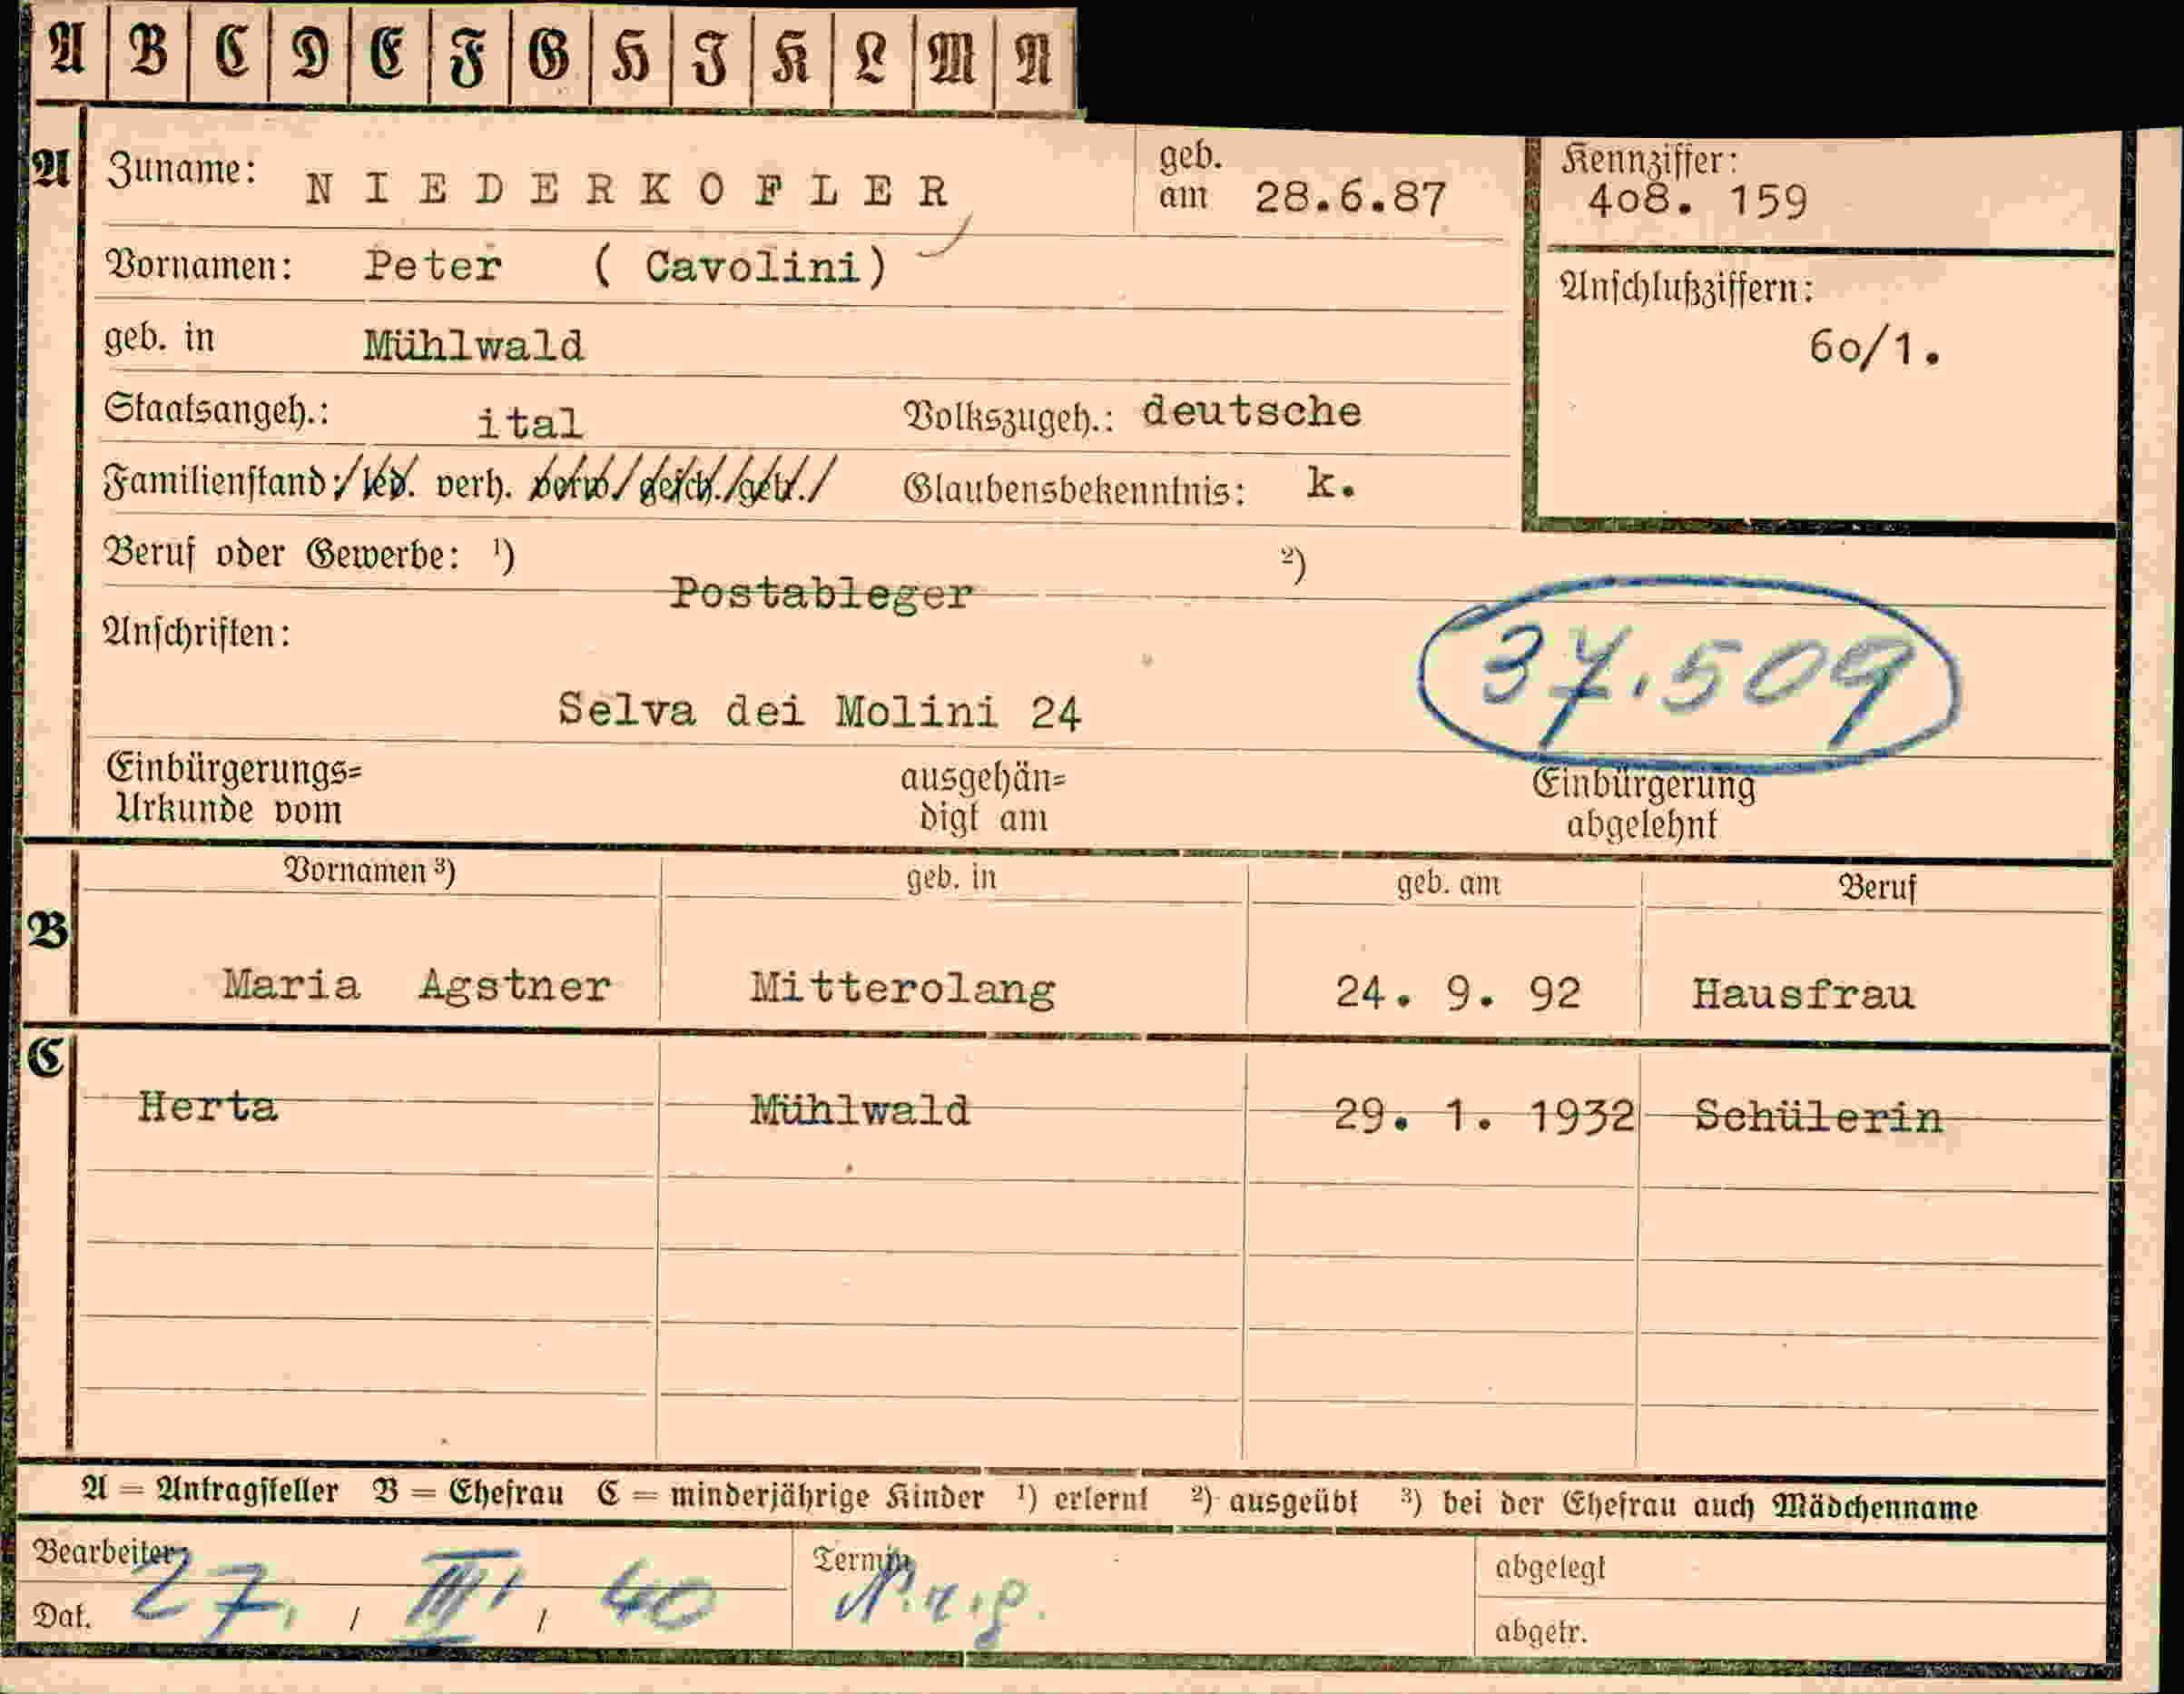 A B C D E F G H I K L M N
A Zuname: NIEDERKOFLER geb. am 28.6.87 Kennziffer: 408. 159
Vornamen: Peter ( Cavolini)
Anschlußziffern: 60/1.
geb. in Mühlwald
Staatsangeh.: ital Volkszugeh.: deutsche
Familienstand: / led. verh. verw. / gesch. / getr. / Glaubensbekenntnis: k.
Beruf oder Gewerbe: ¹) Postableger ²)
Anschriften:
37.509
Selva dei Molini 24
Einbürgerungs=
Urkunde vom
ausgehän=
digt am
Einbürgerung
abgelehnt
Vornamen ³) geb. in geb. am Beruf
B Maria Agstner Mitterolang 24. 9. 92 Hausfrau
C Herta Mühlwald 29. 1. 1932 Schülerin
A = Antragsteller B = Ehefrau C = minderjährige Kinder ¹) erlernt ²) ausgeübt ³) bei der Ehefrau auch Mädchenname
Bearbeiter:
Dat. 27. / III / 40
Termin
abgelegt
abgetr.